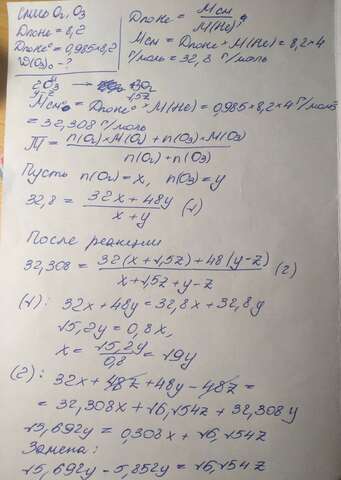 Смесь O₂, O₃
Dпоне = 8,2
Dпоне° = 0,985·8,2
φ(O₃)₀ - ?
Dпоне = Mсм / M(He),
Mсм = Dпоне · M(He) = 8,2·4
г/моль = 32,8 г/моль
2O₃ → 3O₂
z 1,5z
Mсм₀ = Dпоне° · M(He) = 0,985·8,2·4 г/моль =
= 32,308 г/моль
M̅ = (n(O₂)·M(O₂) + n(O₃)·M(O₃)) / (n(O₂) + n(O₃))
Пусть n(O₂) = x, n(O₃) = y
32,8 = (32x + 48y) / (x + y) (1)
После реакции
32,308 = (32(x + 1,5z) + 48(y - z)) / (x + 1,5z + y - z) (2)
(1): 32x + 48y = 32,8x + 32,8y
15,2y = 0,8x,
x = 15,2y / 0,8 = 19y
(2): 32x + 48z + 48y - 48z =
= 32,308x + 16,154z + 32,308y
15,692y = 0,308x + 16,154z
Замена:
15,692y - 5,852y = 16,154z